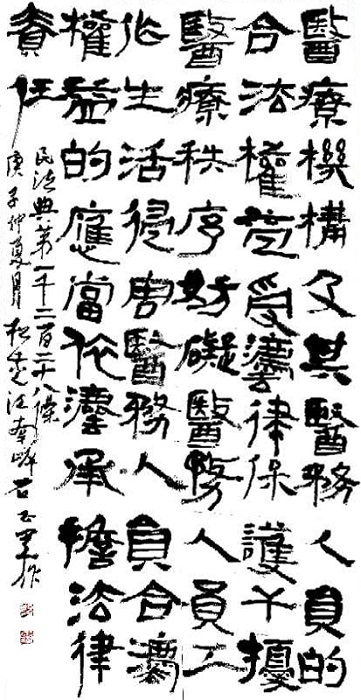 醫療機構及其醫務人員的
合法權益受灋律保護干擾
醫療秩序妨礙醫務人員工
作生活侵害醫務人員合灋
權益的應當依灋承擔法律
責任
民法典第一千二百二十八條
庚子仲夏月